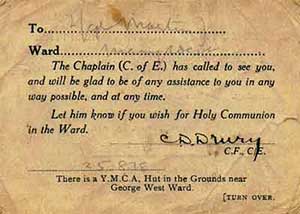 To
Ward
The Chaplain (C. of E.) has called to see you,
and will be glad to be of any assistance to you in any
way possible, and at any time.
Let him know if you wish for Holy Communion
in the Ward.
C D Drury
C.F., C.E.
There is a Y.M.C.A. Hut in the Grounds near
George West Ward.
[TURN OVER.